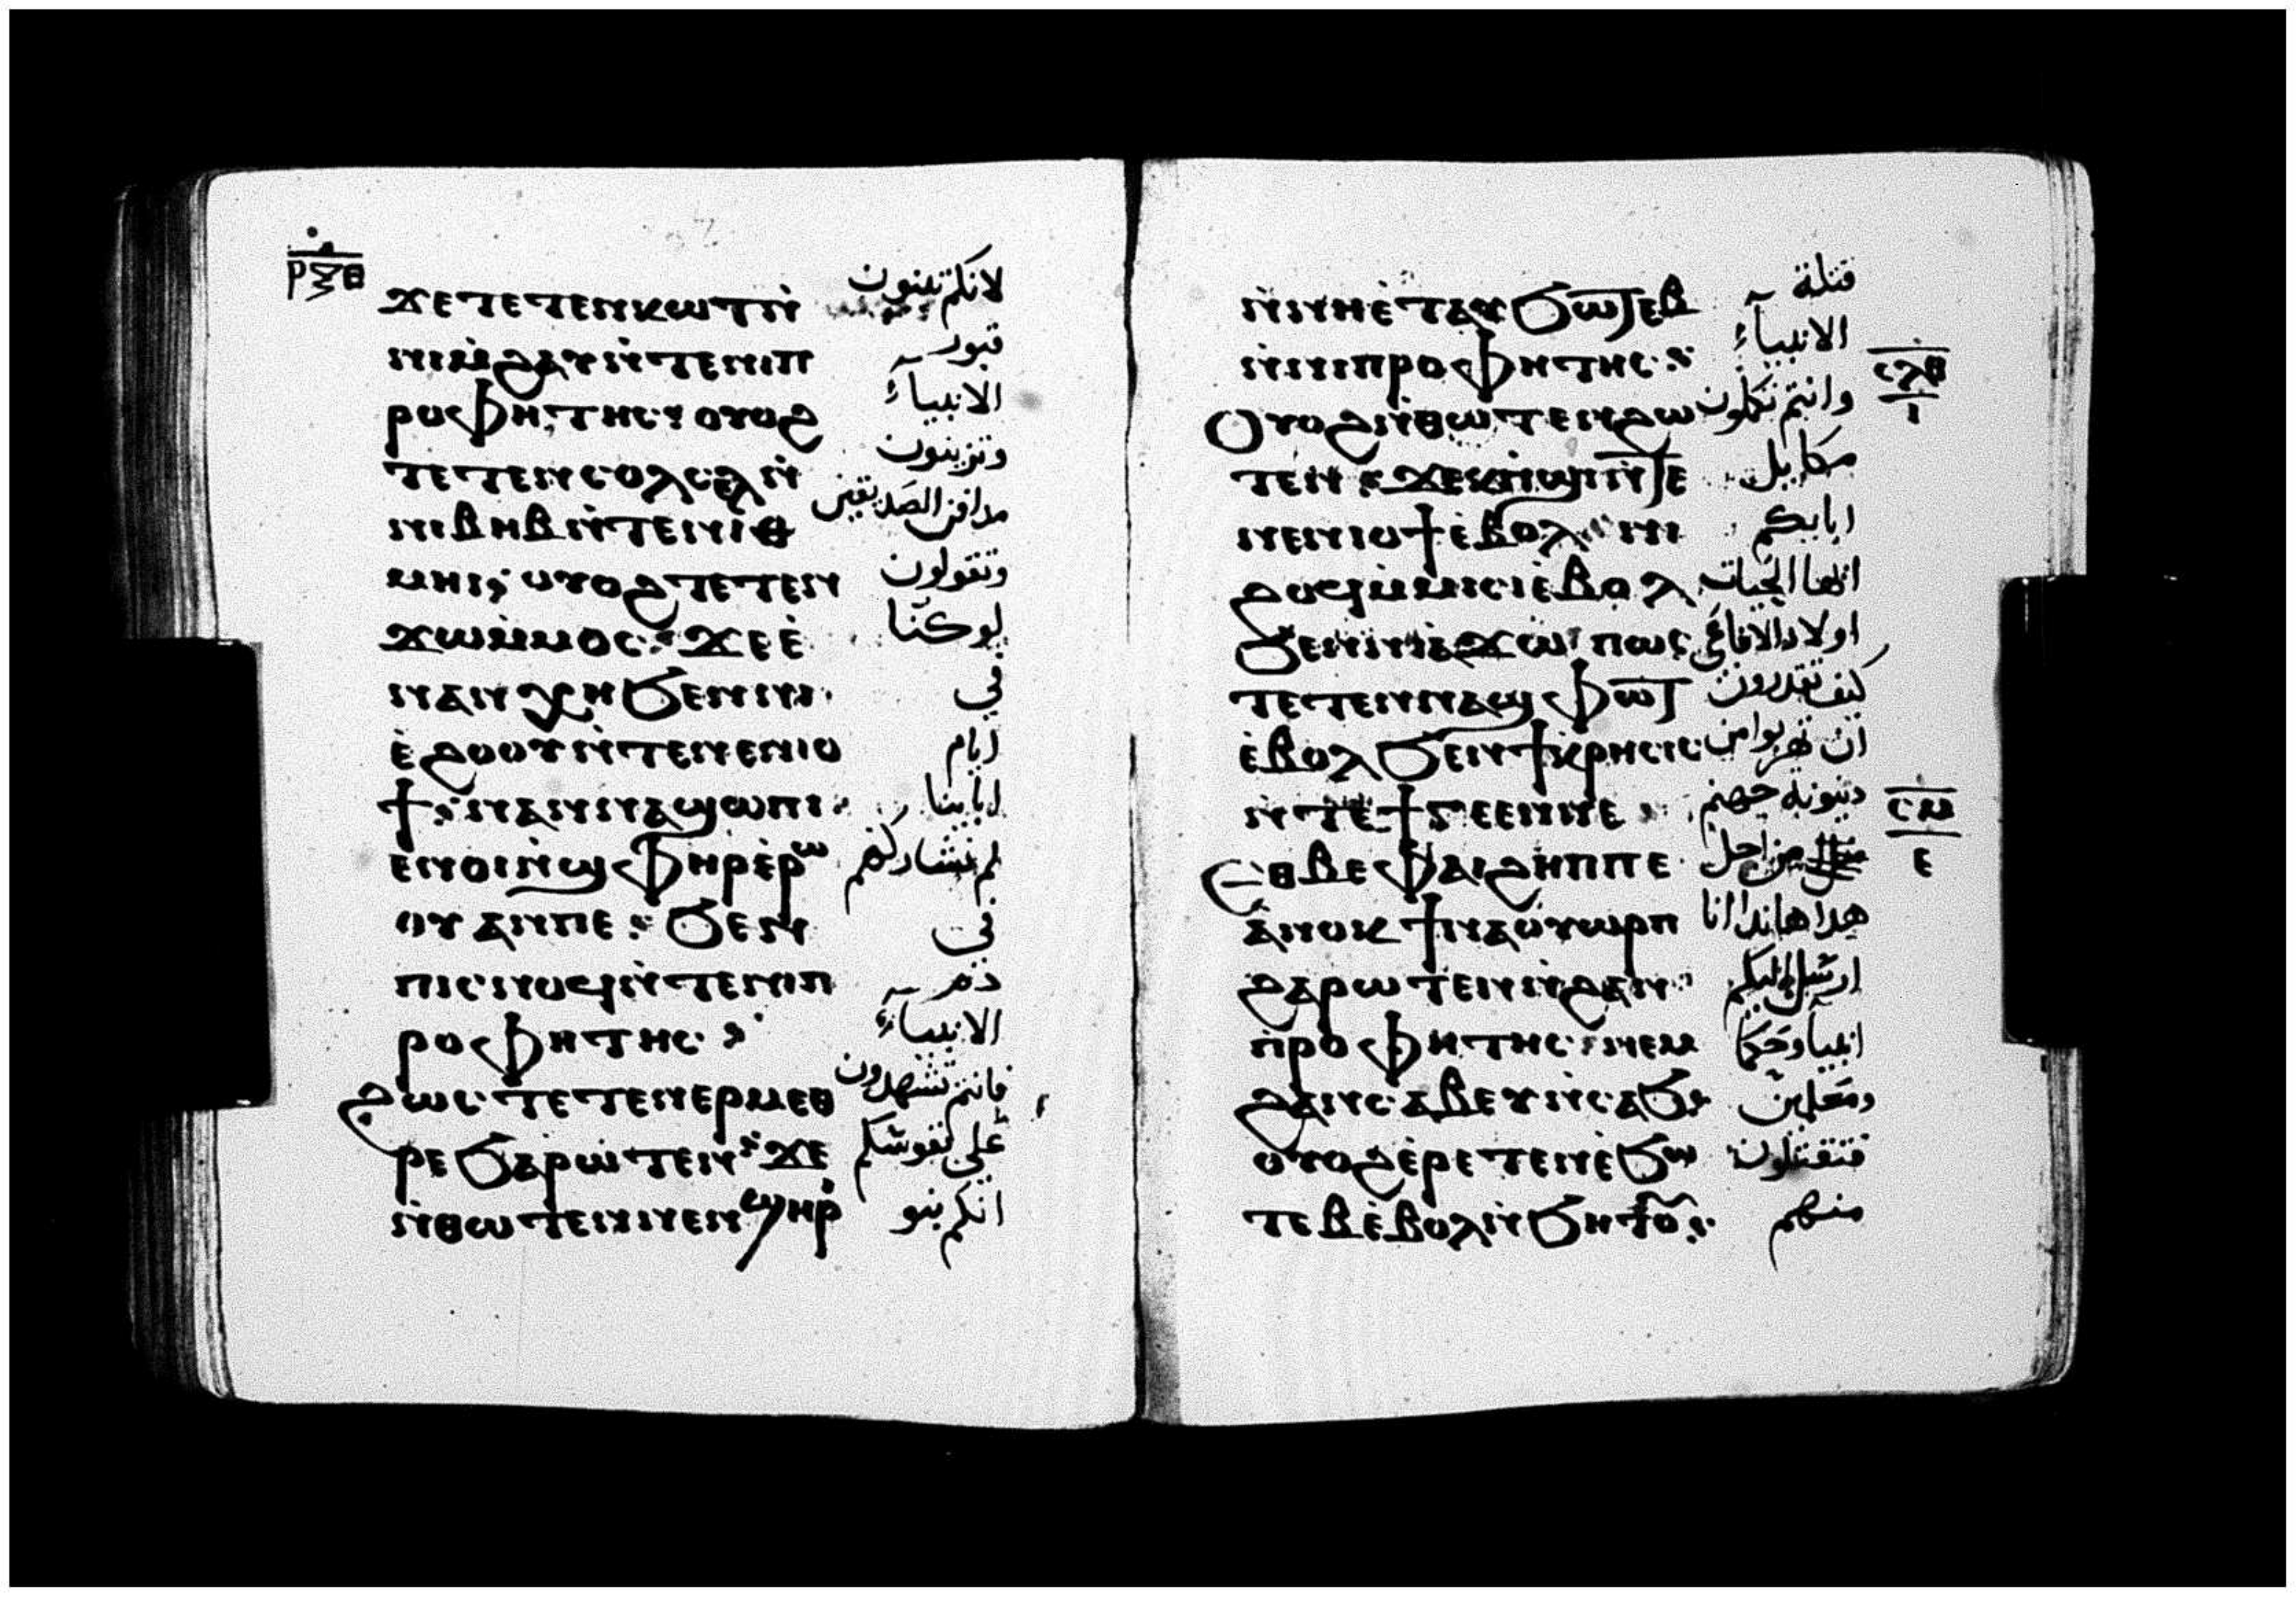 ⲣⲝⲑ
ϫⲉⲧⲉⲧⲉⲛⲕⲱⲧⲛ̇ لانكم تبنون
ⲛⲓⲙ̇ϩⲁⲩⲛ̇ⲧⲉⲛⲓⲡ قبور
ⲣⲟⲫⲏⲧⲏⲥ ⲟⲩⲟϩ الانبيآء
ⲧⲉⲧⲉⲛⲥⲟⲗⲥⲉⲗⲛ̇ وتزينون
ⲛⲓⲃⲏⲃⲛ̇ⲧⲉⲛⲓⲑ مدافن الصديقين
ⲙⲏⲓ ⲟⲩⲟϩⲧⲉⲧⲉⲛ وتقولون
ϫⲱⲙ̇ⲙⲟⲥ ϫⲉⲉ̇ لو كنّا
ⲛⲁⲛⲭⲏϧⲉⲛⲛⲓ في
ⲉ̇ϩⲟⲟⲩⲛ̇ⲧⲉⲛⲉⲛⲓⲟ ايام
ϯ ⲛⲁⲛⲛⲁϣⲱⲡⲓ ابابينا
ⲉⲛⲟⲓⲛ̇ϣⲫⲏⲣⲉ̇ⲣⲱ لم نشاركهم
ⲟⲩ ⲁⲛⲡⲉ ϧⲉⲛ في
ⲡⲓⲥⲛⲟϥⲛ̇ⲧⲉⲛⲓⲡ دم
ⲣⲟⲫⲏⲧⲏⲥ الانبيآء
ϩⲱⲥ ⲧⲉⲧⲉⲛⲉⲣⲙⲉⲑ فانتم تشهدون
ⲣⲉϧⲁⲣⲱⲧⲉⲛ ϫⲉ على نفوسكم
ⲛ̇ⲑⲱⲧⲉⲛⲛⲉⲛϣⲏⲣ انكم بنو
ⲛ̇ⲛⲏⲉ̇ⲧⲁⲩϧⲱⲧⲉⲃ قتلة
ⲛ̇ⲛⲓⲡⲣⲟⲫⲏⲧⲏⲥ الانبيآء
ⲥⲗⲑ
ⲓ
ⲟⲩⲟϩⲛ̇ⲑⲱⲧⲉⲛϩⲱ وانتم تكملون
ⲧⲉⲛ مكاييل
ⲛⲉⲛⲓⲟϯⲉ̇ⲃⲟⲗ ⲛⲓ ابايكم
ϩⲟϥⲙ̇ⲙⲓⲥⲓⲉ̇ⲃⲟⲗ ايها الحيات
ϧⲉⲛⲛⲓⲁ̇ϫⲱ ⲡⲱⲥ اولاد الافاعي
ⲧⲉⲧⲉⲛⲛⲁϣⲫⲱⲧ كيف تقدرون
ⲉ̇ⲃⲟⲗϧⲉⲛϯⲕⲣⲏⲥⲓⲥ ان تهربوا من
ⲛ̇ⲧⲉϯⲅⲉⲉⲛⲛⲉ دينونة جهنم
ⲥⲙ
ⲉ
ⲉⲑⲃⲉⲫⲁⲓϩⲏⲡⲡⲉ من اجل
ⲁ̇ⲛⲟⲕϯⲛⲁⲟⲩⲱⲣⲡ هذا هاندا انا
ϩⲁⲣⲱⲧⲉⲛⲛ̇ϩⲁⲛ ارسل اليكم
ⲡ̇ⲣⲟⲫⲏⲧⲏⲥ ⲛⲉⲙ انبيا وحكما
ϩⲁⲛⲥⲁⲃⲉⲩⲛ̇ⲥⲁϧ ومعلمين
ⲟⲩⲟϩⲉ̇ⲣⲉⲧⲉⲛⲉ̇ϧⲱ فتقتلون
ⲧⲉⲃⲉ̇ⲃⲟⲗⲛ̇ϧⲏⲧⲟⲩ منهم